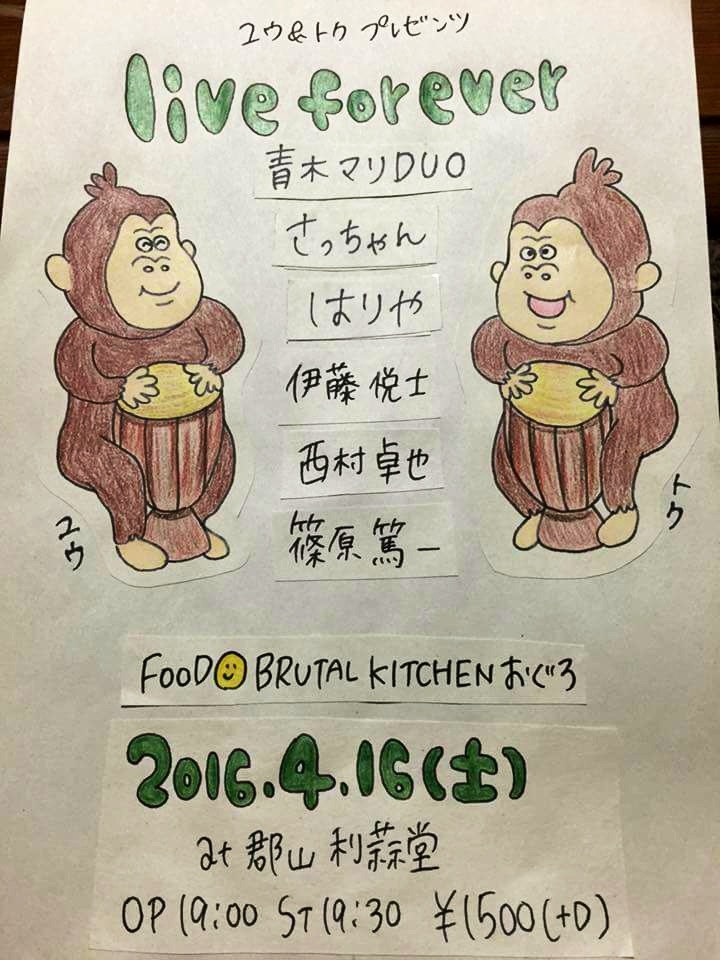 ユウ&トク プレゼンツ
live forever
青木マリDUO
さっちゃん
はりや
伊藤 悦士
西村 卓也
篠原 篤一
ユウ
トク
FOOD BRUTAL KITCHEN おぐろ
2016.4.16(土)
at 郡山 利蒜堂
OP 19:00 ST 19:30 ¥1500(+D)